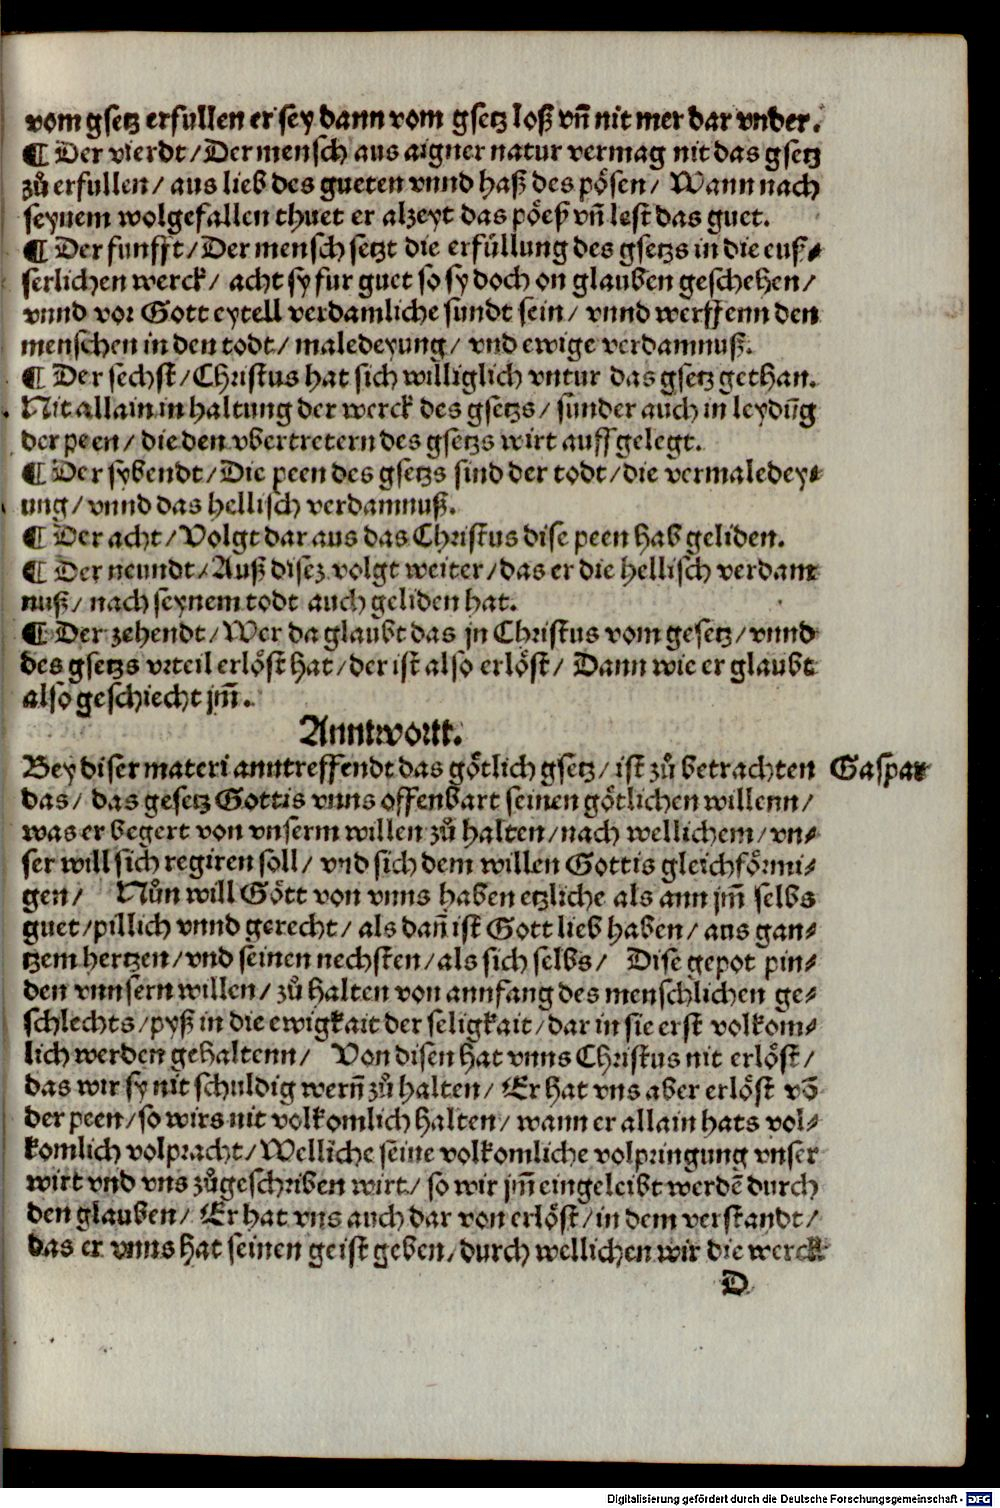 vom gsetz erfullen er sey dann vom gsetz loß vñ nit mer dar vnder.
¶ Der vierdt/ Der mensch aus aigner natur vermag nit das gsetz
zů erfullen/ aus lieb des gueten vnnd haß des pösen/ Wann nach
seynem wolgefallen thuet er alzeyt das pöeß vñ lest das guet.
¶ Der funfft/ Der mensch setzt die erfüllung des gsetzs in die euß⸗
serlichen werck/ acht sy fur guet so sy doch on glauben geschehen/
vnnd vor Gott eytell verdamliche sundt sein/ vnnd werffenn den
menschen in den todt/ maledeyung/ vnd ewige verdamnuß.
¶ Der sechst/ Christus hat sich williglich vntur das gsetz gethan.
Nit allain in haltung der werck des gsetzs/ sunder auch in leydũg
der peen/ die den vbertretern des gsetzs wirt auffgelegt.
¶ Der sybendt/ Die peen des gsetzs sind der todt/ die vermaledey⸗
ung/ vnnd das hellisch verdamnuß.
¶ Der acht/ Volgt dar aus das Christus dise peen hab geliden.
¶ Der neundt/ Auß disez volgt weiter/ das er die hellisch verdam
nuß/ nach seynem todt auch geliden hat.
¶ Der zehendt/ Wer da glaubt das jn Christus vom gesetz/ vnnd
des gsetzs vrteil erlöst hat/ der ist also erlöst/ Dann wie er glaubt
also geschiecht jm̃.
Anntwortt.
Bey diser materi anntreffendt das götlich gsetz/ ist zů betrachten Gaspar
das/ das gesetz Gottis vnns offenbart seinen götlichen willenn/
was er begert von vnserm willen zů halten/ nach wellichem/ vn⸗
ser will sich regiren soll/ vnd sich dem willen Gottis gleichförmi⸗
gen/ Nůn will Gött von vnns haben etzliche als ann jm̃ selbs
guet/ pillich vnnd gerecht/ als dañ ist Gott lieb haben/ aus gan⸗
tzem hertzen/ vnd seinen nechsten/ als sich selbs/ Dise gepot pin⸗
den vnnsern willen/ zů halten von annfang des menschlichen ge⸗
schlechts/ pyß in die ewigkait der seligkait/ dar in sie erst volkom⸗
lich werden gehaltenn/ Von disen hat vnns Christus nit erlöst/
das wir sy nit schuldig werñ zů halten/ Er hat vns aber erlöst võ
der peen/ so wirs nit volkomlich halten/ wann er allain hats vol⸗
komlich volpracht/ Welliche seine volkomliche volpringung vnser
wirt vnd vns zůgeschriben wirt/ so wir jm̃ eingeleibt werdẽ durch
den glauben/ Er hat vns auch dar von erlöst/ in dem verstandt/
das er vnns hat seinen geist geben/ durch wellichen wir die werck
D
Digitalisierung gefördert durch die Deutsche Forschungsgemeinschaft - DFG